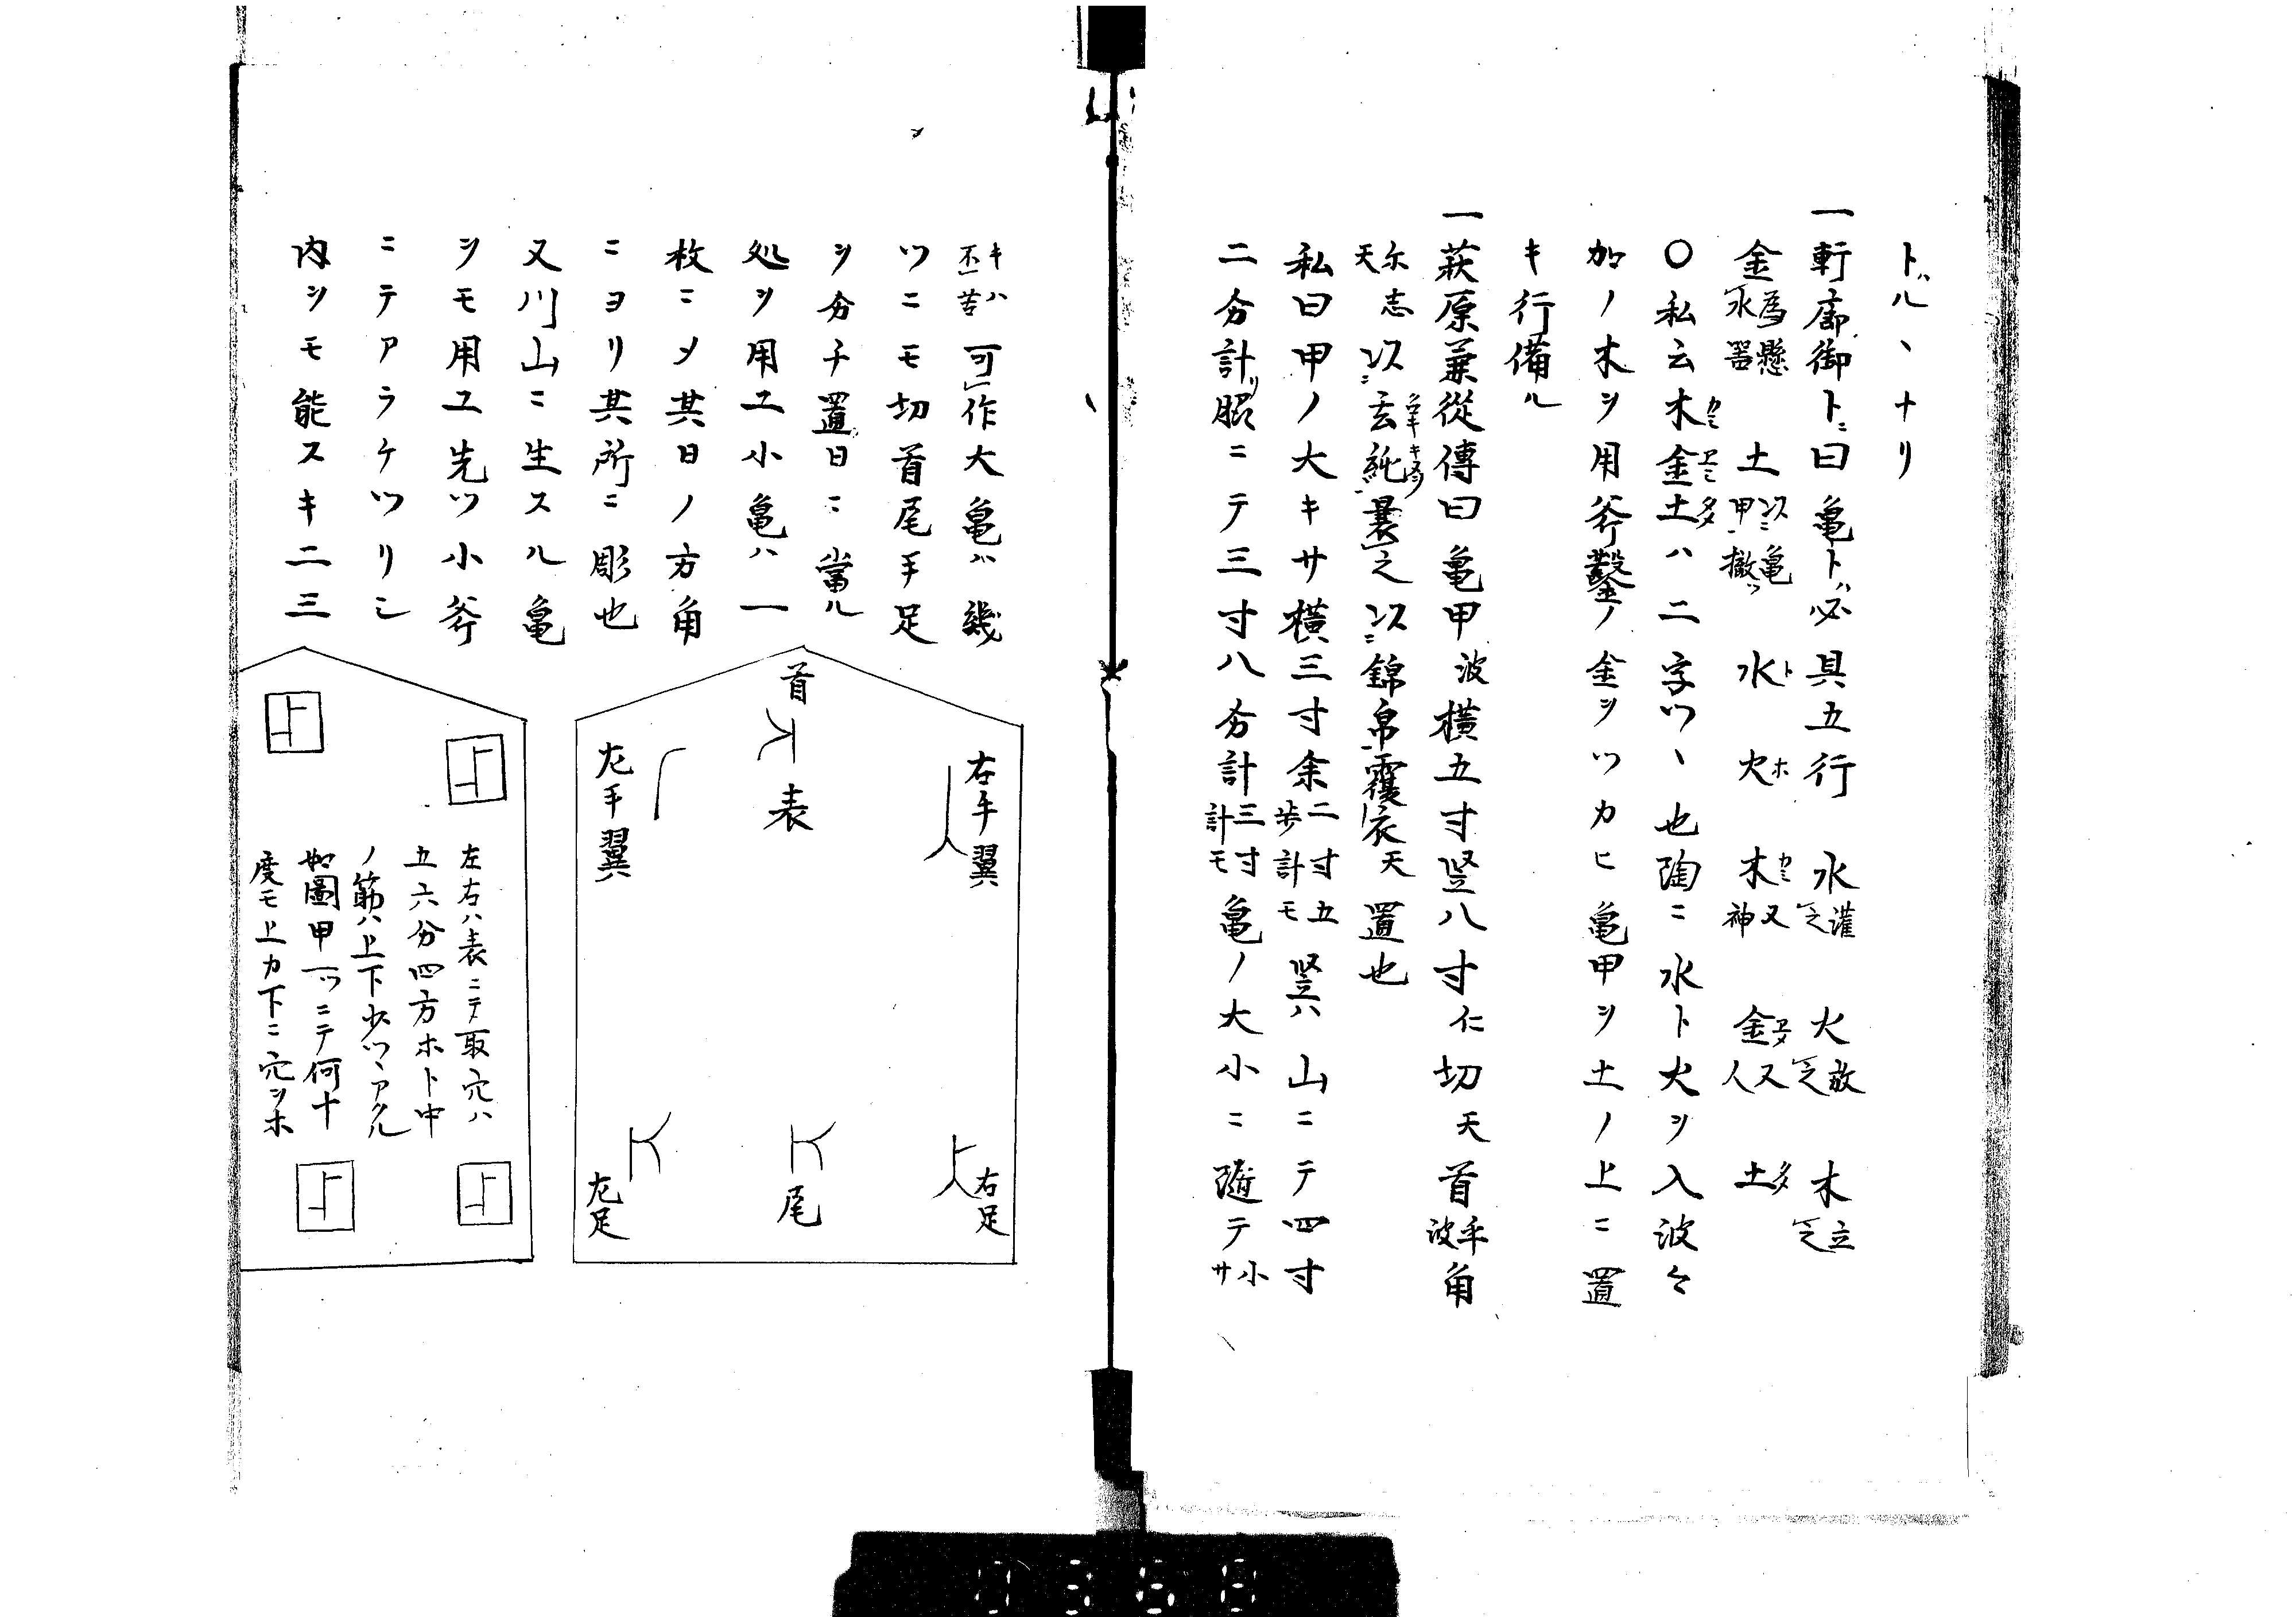 ドル、ナリ
一軒廊御卜ニ曰亀卜ハ必具五行 水灌之 火敬之 木立之
金為懸水器 土以亀甲撤 水ト 火ホ 木カミ又神 金ヱタ又人 土タ
〇私云木カミ金エミ土タハ二字ツヽ也陶ニ水ト火ヲ入波々
加ノ木ヲ用斧鑿ノ金ヲツカヒ亀甲ヲ土ノ上ニ置
キ行備ル
一萩原兼從傳曰亀甲波横五寸竪八寸仁切天首手波角
尓志天以玄純裹之以錦帛覆衣天置也
私曰甲ノ大キサ横三寸余二寸五歩計モ竪ハ山ニテ四寸
二分計リ昭ニテ三寸八分計三寸計モ亀ノ大小ニ隨テ小サ
キハ不苦可作大亀ハ幾
ツニモ切首尾手足
ヲ分チ置日ニ當ル
処ヲ用ユ小亀ハ一
枚ニメ其日ノ方角
ニヨリ其所ニ彫也
又川山ニ生スル亀
ヲモ用ユ先ツ小斧
ニテアラケツリシ
内ヲモ能スキ二三
首
表
右手翼
左手翼
右足
尾
左足
左右ハ表ニテ取穴ハ
五六分四方ホト中
ノ筋ハ上下少ツヽアクル
如圖甲一ツニテ何十
度モ上カ下ニ穴ヲホ